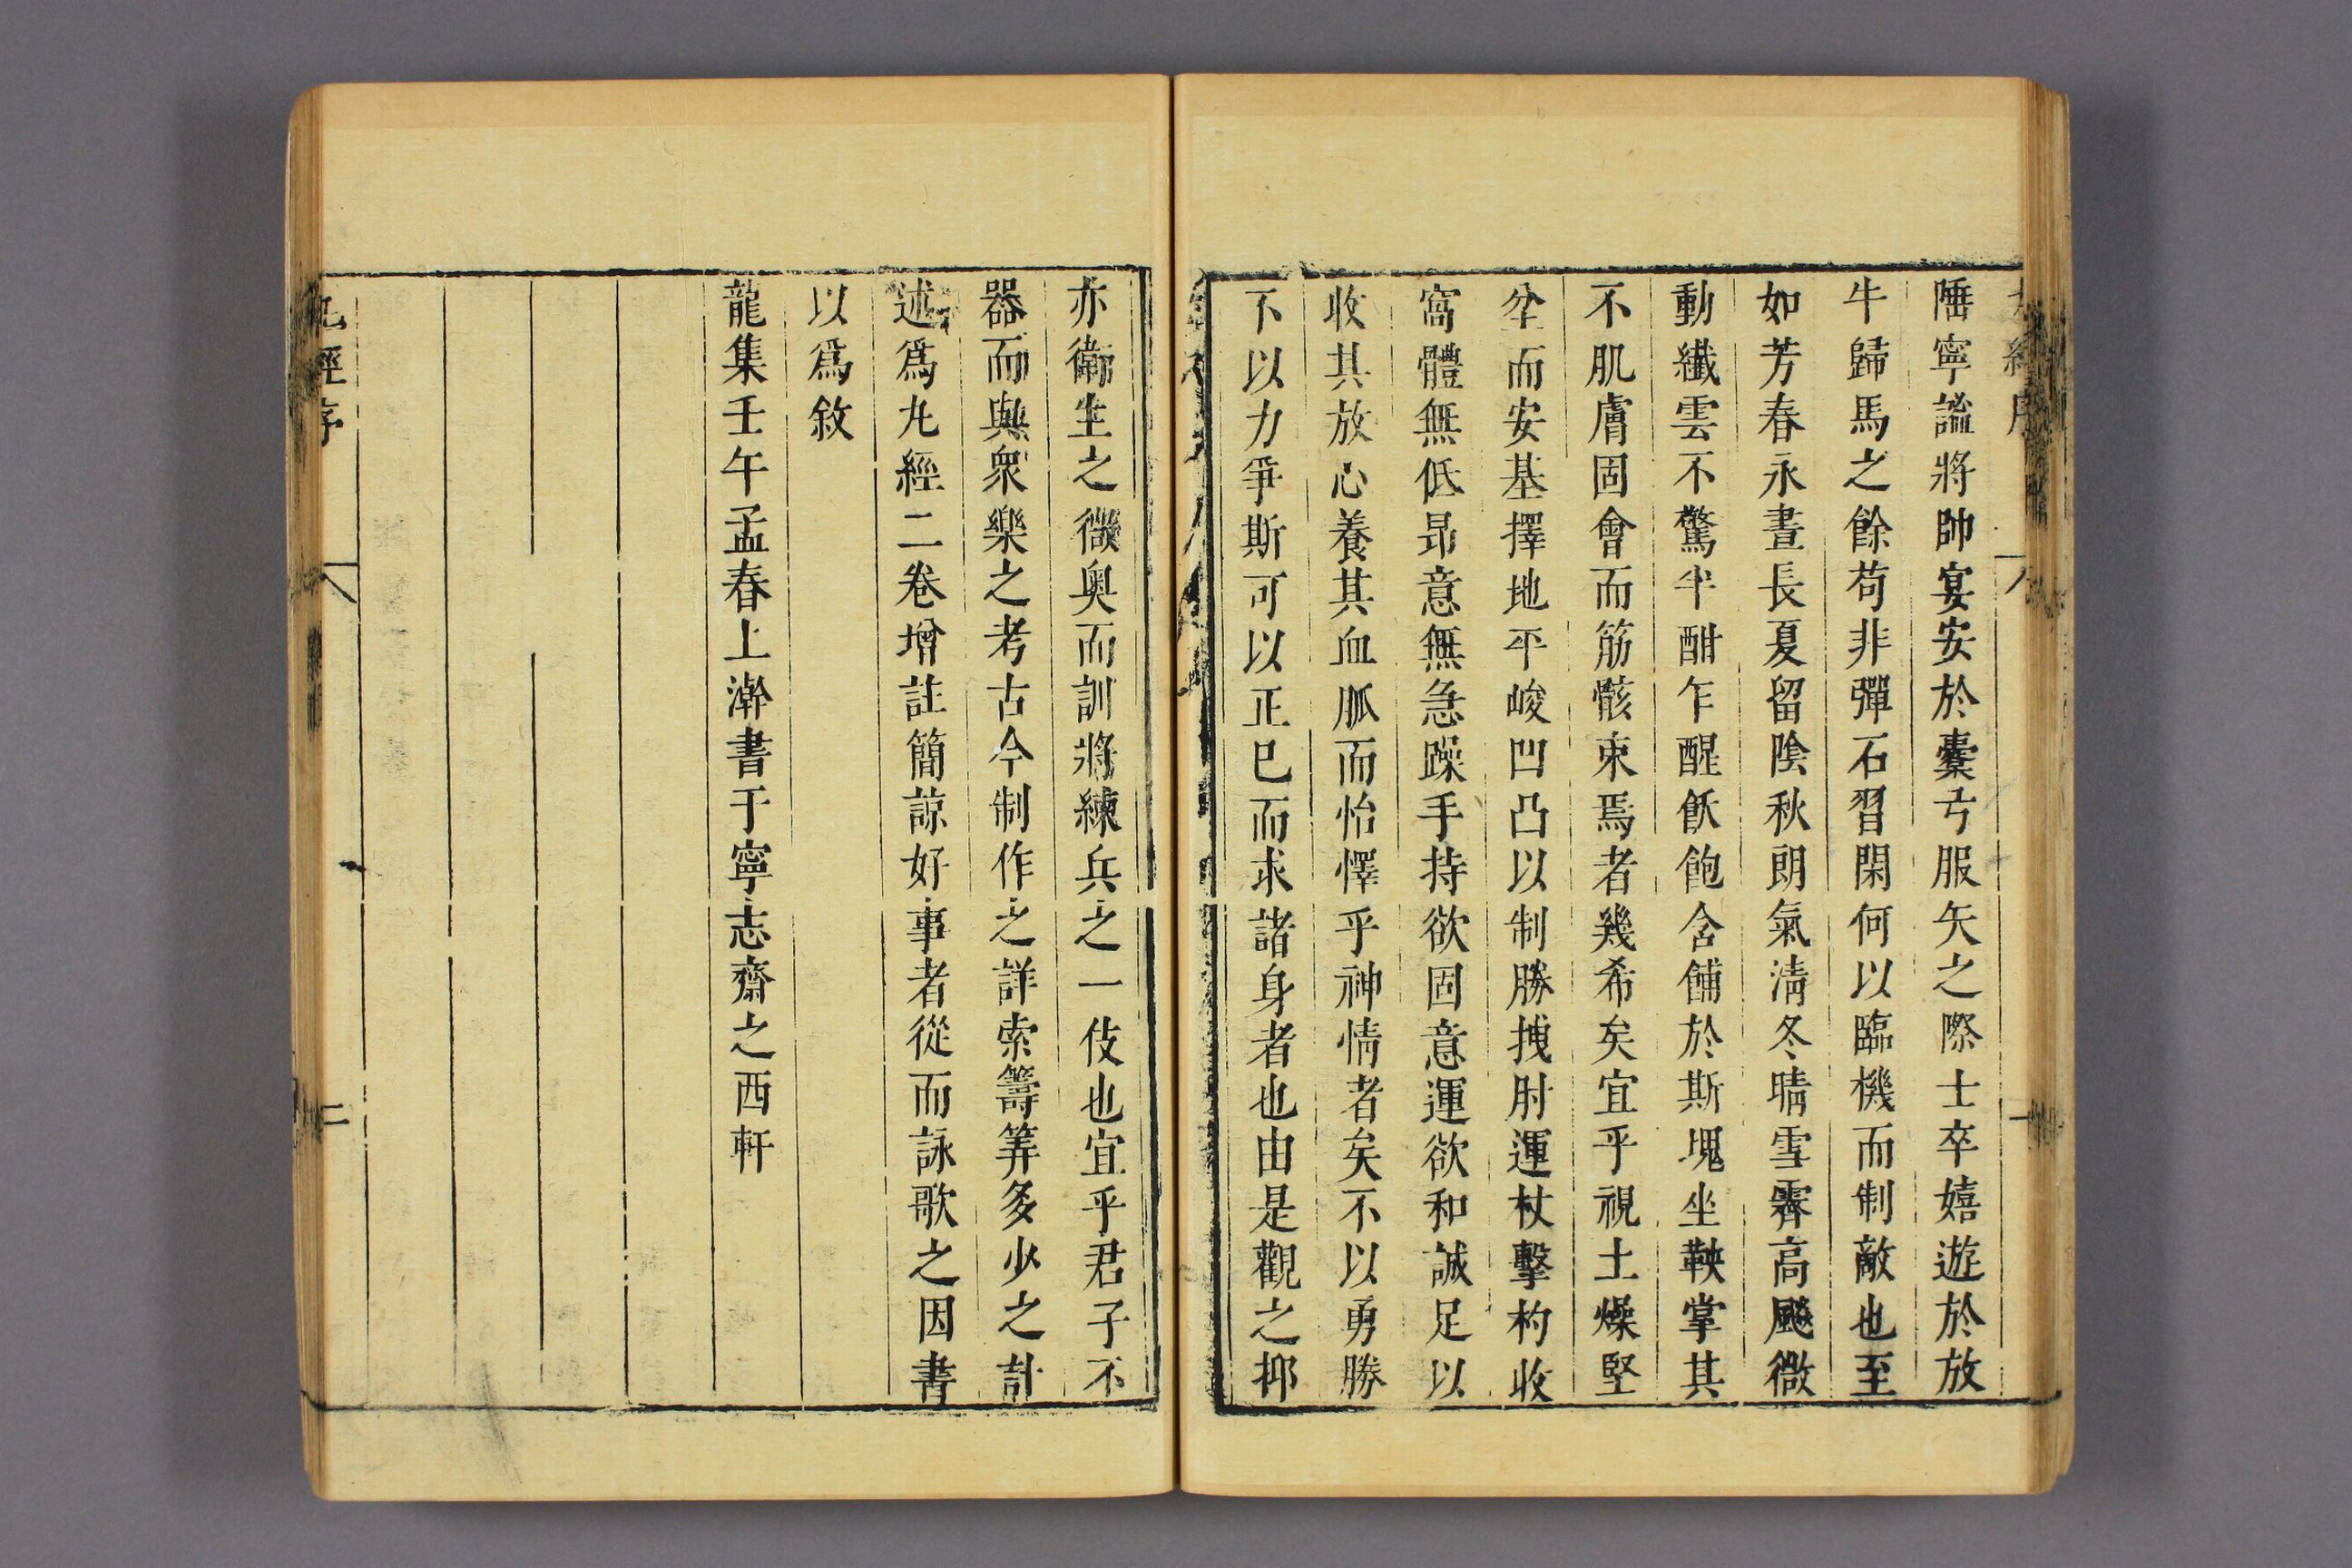 陲寧謐將帥宴安於櫜弓服矢之際士卒嬉遊於放
牛歸馬之餘苟非彈石習閑何以臨機而制敵也至
如芳春永晝長夏留陰秋朗氣清冬晴雪霽高飈微
動纖雲不驚半酣乍醒飫飽含餔於斯塊坐鞅掌其
不肌膚固會而筋骸束焉者幾希矣宜乎視土燥堅
坌而安基擇地平峻凹凸以制勝拽肘運杖擊杓收
窩體無低昻意無急躁手持欲固意運欲和誠足以
收其放心養其血脈而怡懌乎神情者矣不以勇勝
不以力爭斯可以正巳而求諸身者也由是觀之抑
亦衛生之微奥而訓將練兵之一伎也宜乎君子不
器而與衆樂之考古今制作之詳索籌筭多少之計
述爲九經二卷增註簡諒好事者從而詠歌之因書
以爲敘
龍集壬午孟春上澣書于寧志齋之西軒
九經序
二